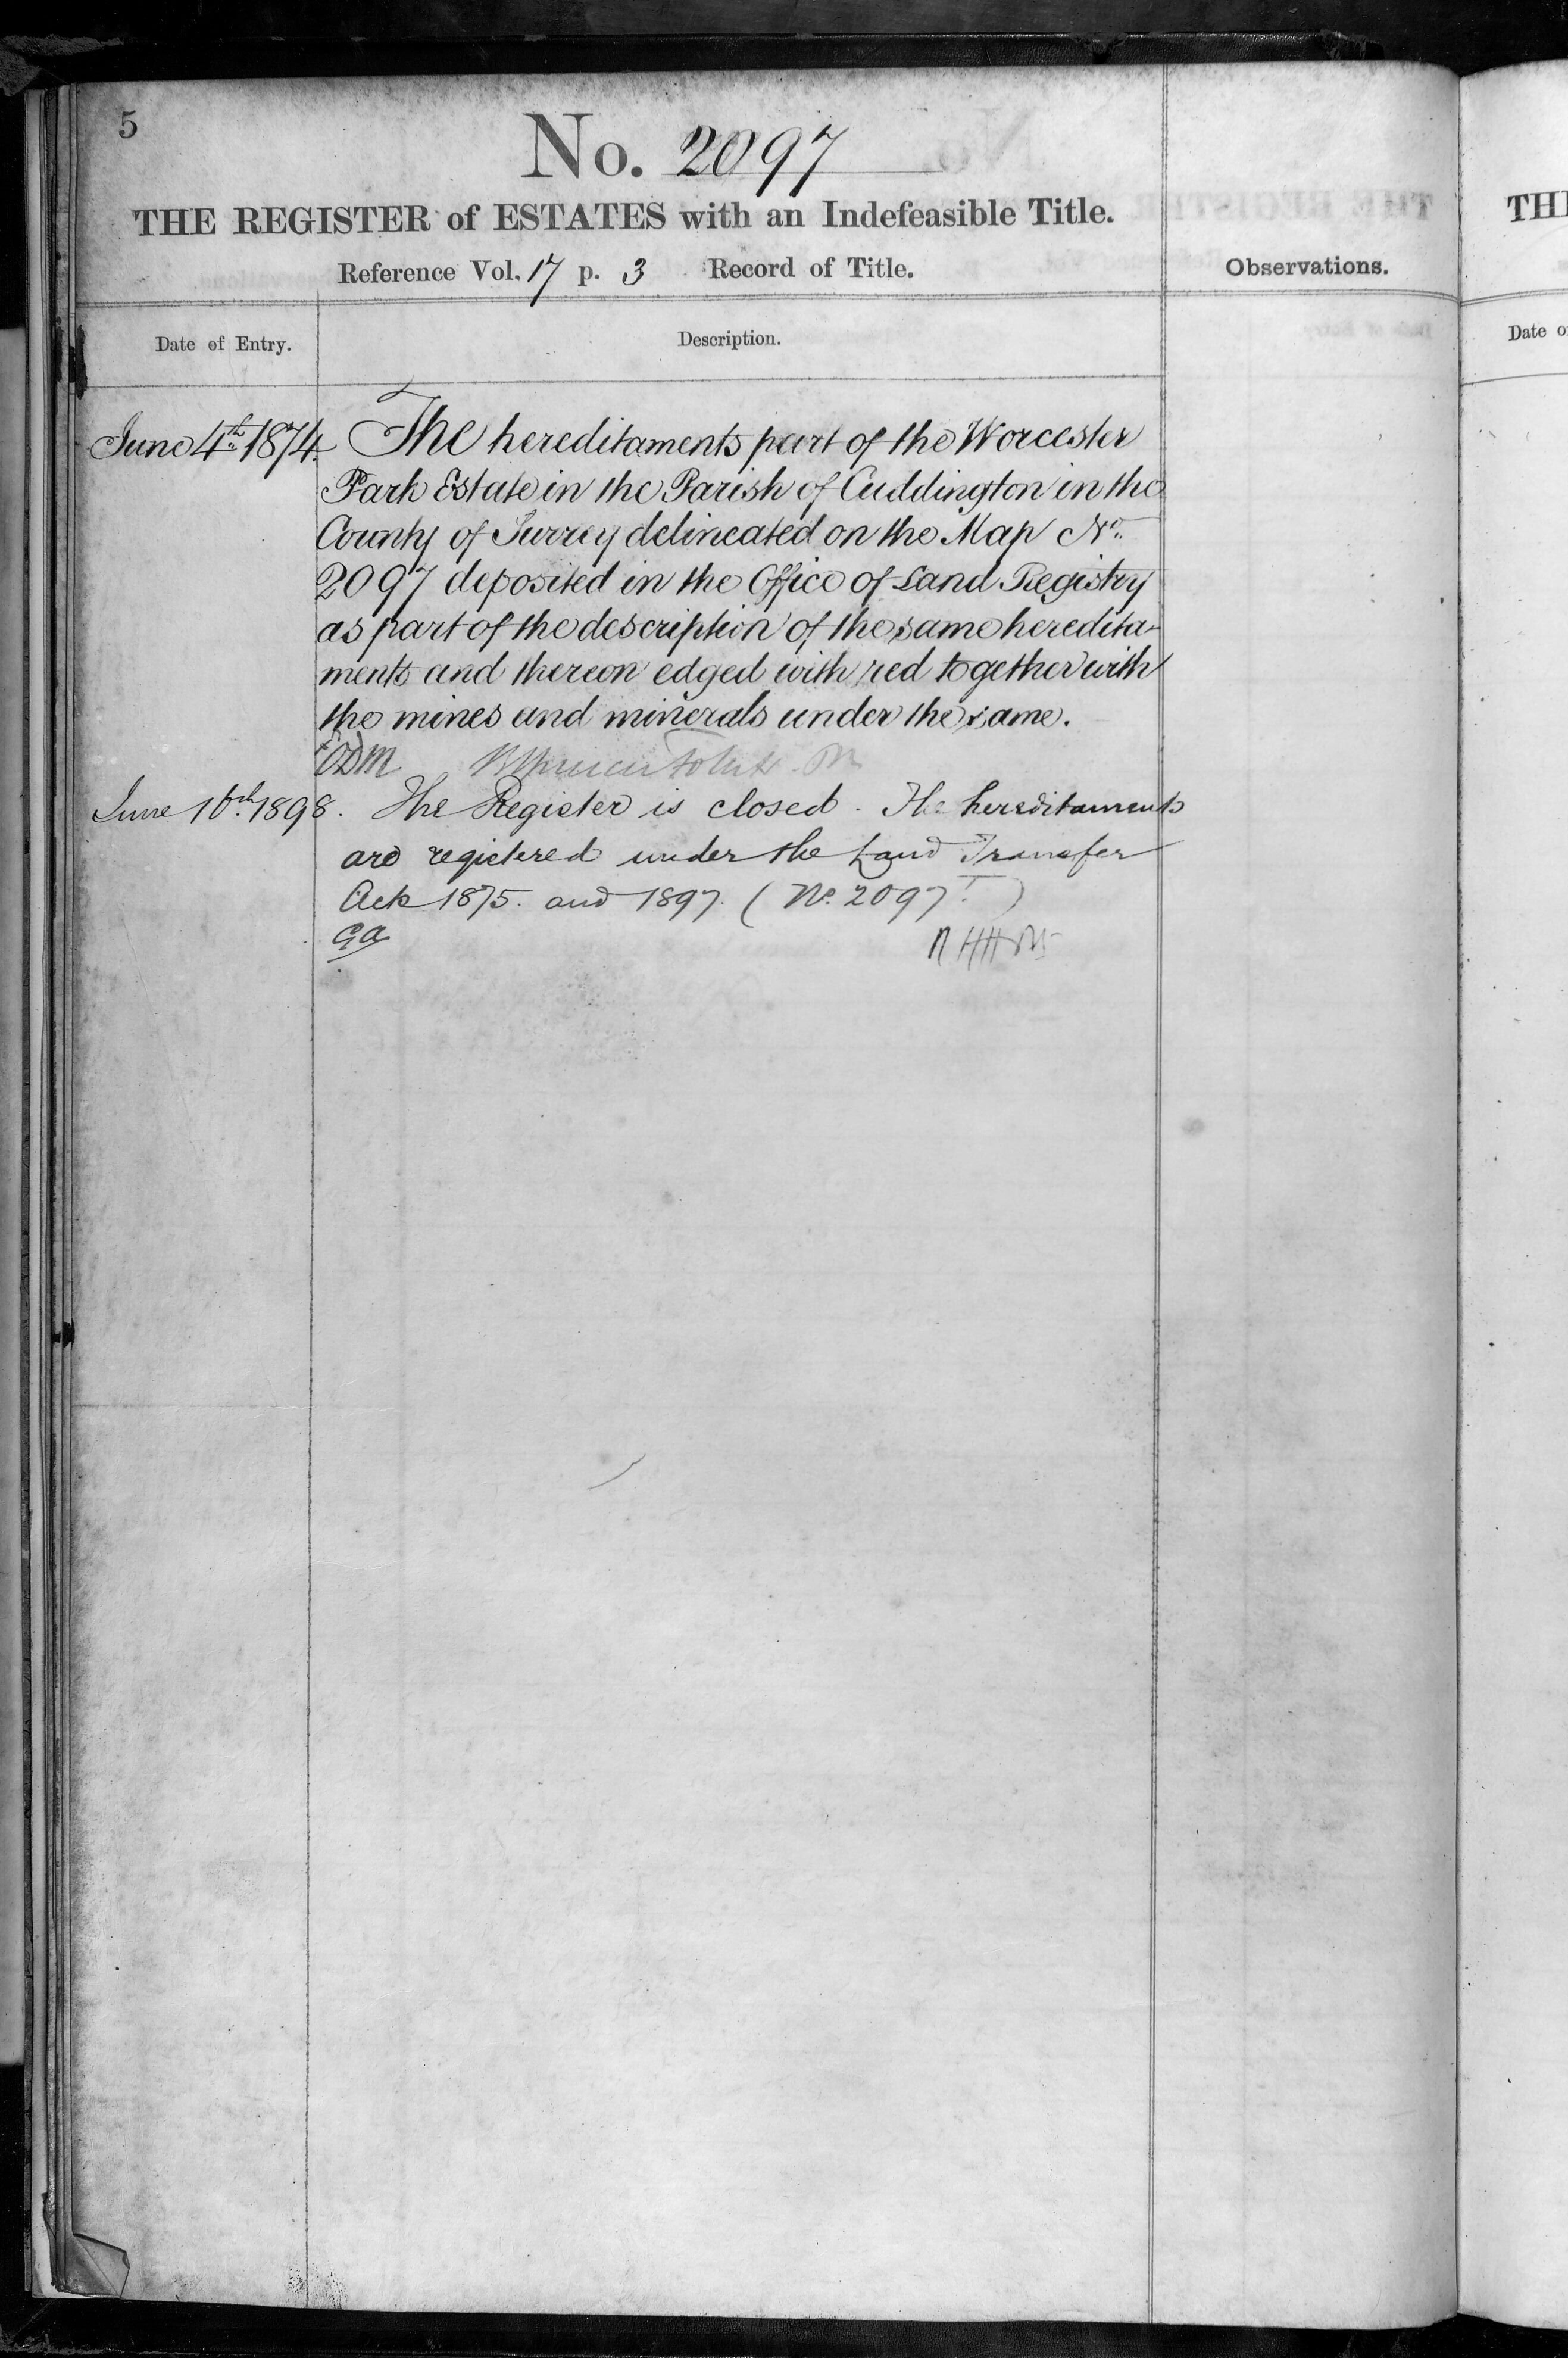 5
No. 2097
THE REGISTER of ESTATES with an Indefeasible Title.
Reference Vol. 17 p. 3 Record of Title.
Observations.
Date of Entry.
Description.
June 4th 1874. The hereditaments part of the Worcester
Park Estate in the Parish of Cuddington in the
County of Surrey delineated on the Map No.
2097 deposited in the Office of Land Registry
as part of the description of the same heredita-
ments and thereon edged with red together with
the mines and minerals under the same.
June 1898. The Register is closed. The hereditaments
are registered under the Land Transfer
Acts 1875. and 1897. (No. 2097)
GA
TH
Date o